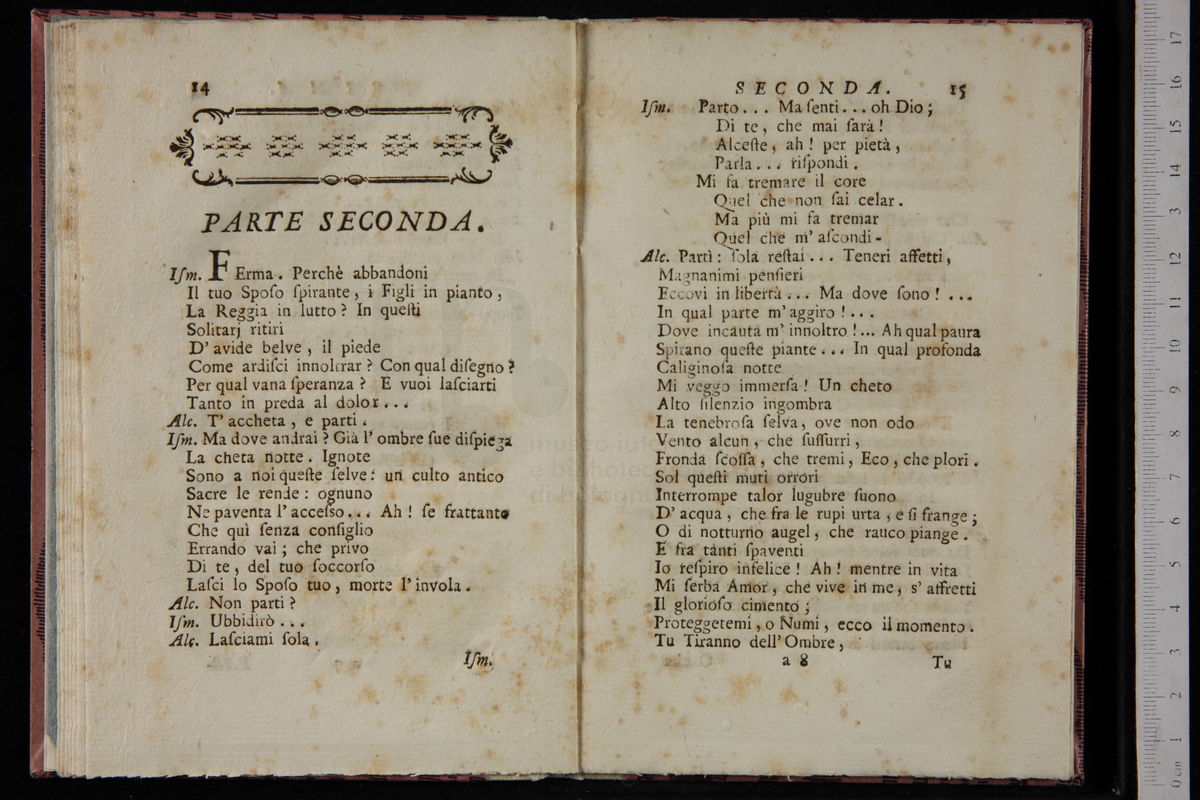 14
PARTE SECONDA.
Iſm. FErma. Perchè abbandoni
Il tuo Spoſo ſpirante, i Figli in pianto,
La Reggia in lutto? In queſti
Solitarj ritiri
D' avide belve, il piede
Come ardiſci innoltrar? Con qual diſegno?
Per qual vana ſperanza? E vuoi laſciarti
Tanto in preda al dolor...
Alc. T' accheta, e parti.
Iſm. Ma dove andrai? Già l' ombre ſue diſpiega
La cheta notte. Ignote
Sono a noi queſte ſelve: un culto antico
Sacre le rende: ognuno
Ne paventa l' acceſſo... Ah! ſe frattanto
Che quì ſenza conſiglio
Errando vai; che privo
Di te, del tuo ſoccorſo
Laſci lo Spoſo tuo, morte l' invola.
Alc. Non parti?
Iſm. Ubbidirò...
Alc. Laſciami ſola.
Iſm.
SECONDA. 15
Iſm. Parto... Ma ſenti... oh Dio;
Di te, che mai ſarà!
Alceſte, ah! per pietà,
Parla... riſpondi.
Mi fa tremare il core
Quel che non ſai celar.
Ma più mi fa tremar
Quel che m' aſcondi-
Alc. Partì: ſola reſtai... Teneri affetti,
Magnanimi penſieri
Eccovi in libertà... Ma dove ſono!...
In qual parte m' aggiro!...
Dove incauta m' innoltro!... Ah qual paura
Spirano queſte piante... In qual profonda
Caliginoſa notte
Mi veggo immerſa! Un cheto
Alto ſilenzio ingombra
La tenebroſa ſelva, ove non odo
Vento alcun, che ſuſſurri,
Fronda ſcoſſa, che tremi, Eco, che plori.
Sol queſti muti orrori
Interrompe talor lugubre ſuono
D' acqua, che fra le rupi urta, e ſi frange;
O di notturno augel, che rauco piange.
E fra tanti ſpaventi
Io reſpiro infelice! Ah! mentre in vita
Mi ſerba Amor, che vive in me, s' affretti
Il glorioſo cimento;
Proteggetemi, o Numi, ecco il momento.
Tu Tiranno dell' Ombre,
a 8 Tu
17
16
15
14
13
12
11
10
9
8
7
6
5
4
3
2
1
0 cm